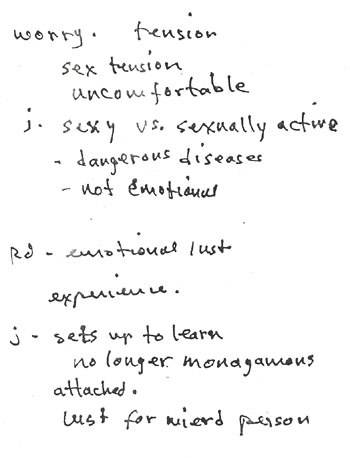 worry. tension
sex tension
uncomfortable
j. sexy vs. sexually active
- dangerous diseases
- not emotional
Rd - emotional lust
experience.
j - sets up to learn
no longer monagamous
attached.
lust for person